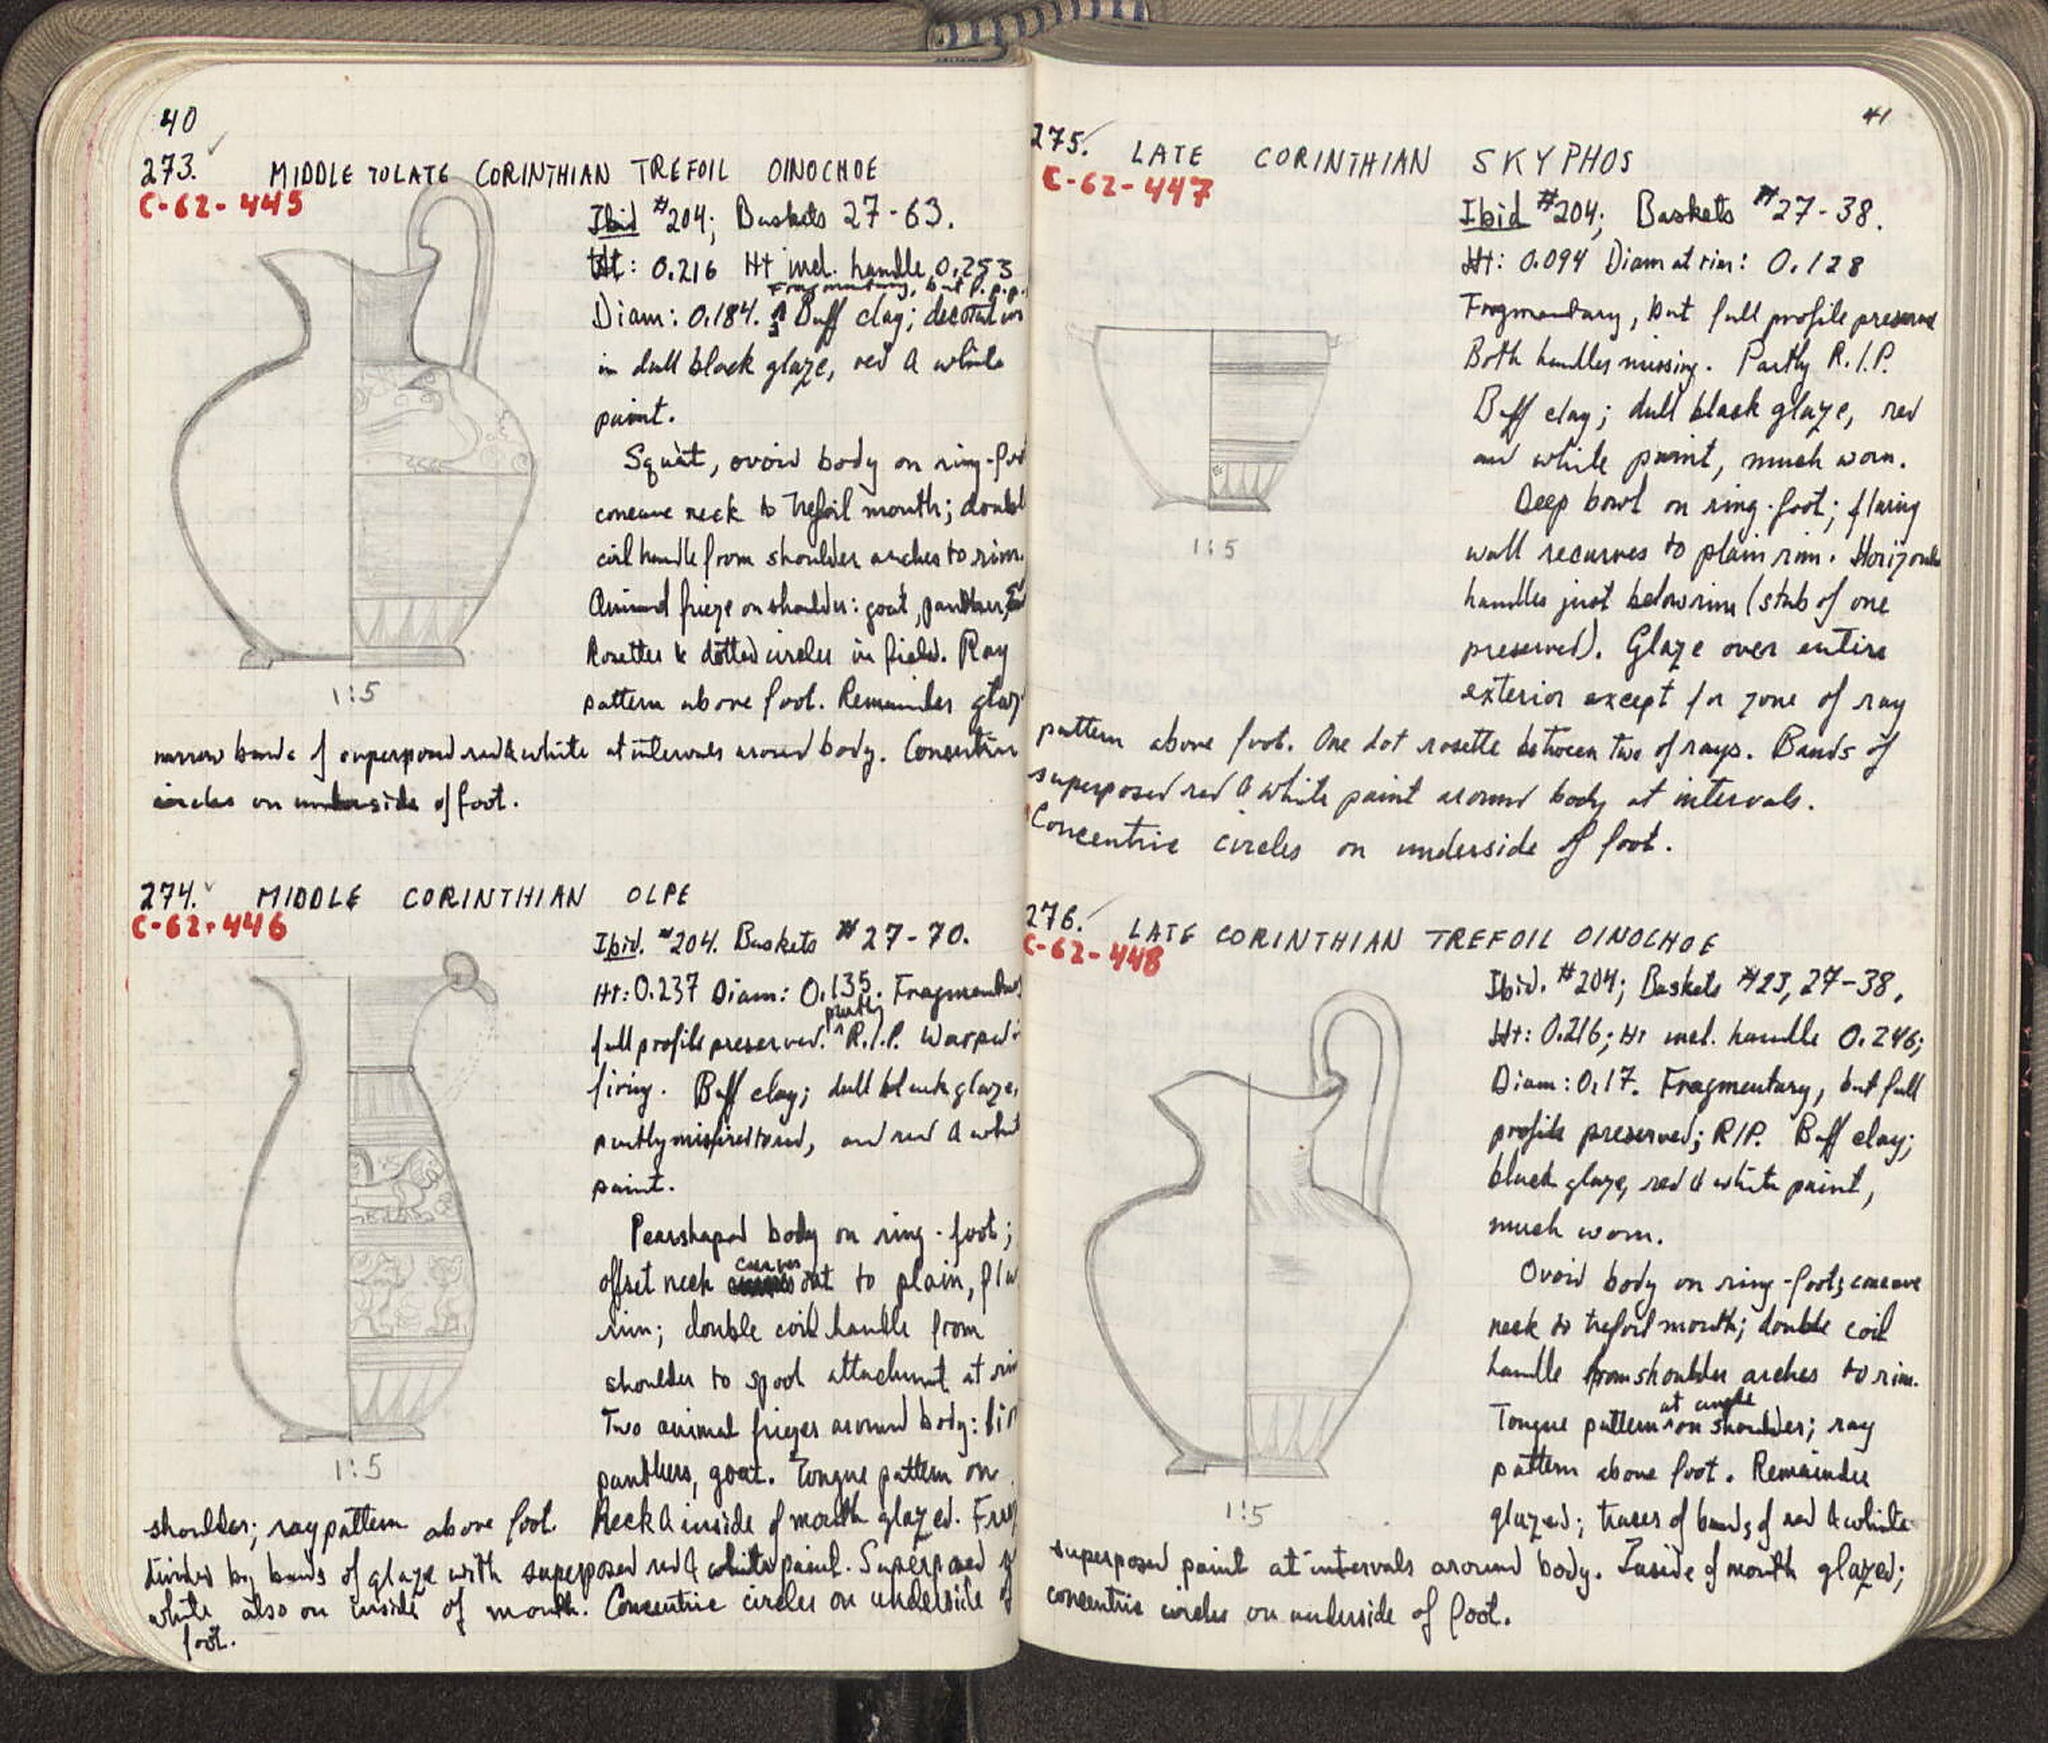 40
273.
MIDDLE TO LATE CORINTHIAN TREFOIL OINOCHOE
C-62-445
Ibid #204; Baskets 27-63.
Ht: 0.216 Ht incl. handle 0.253
Fragmentary, but f.p.p.
Diam: 0.184. Buff clay; decoration
in dull black glaze, red & white
paint.
Squat, ovoid body on ring-foot
concave neck to trefoil mouth; double
coil handle from shoulder arches to rim.
Animal frieze on shoulder: goat, panther,
Rosettes & dotted circles in field. Ray
pattern above foot. Remainder glaz
1:5
narrow bands of superposed red & white at intervals around body. Concentric
circles on underside of foot.
274.
MIDDLE CORINTHIAN OLPE
C-62-446
Ibid. #204. Baskets #27-70.
Ht: 0.237 Diam: 0.135. Fragmentary
full profile preserved. partly R.I.P. Warped
firing. Buff clay; dull black glaze,
partly misfired to red, and red & white
paint.
Pearshaped body on ring-foot;
offset neck curves out to plain, fla
rim; double coil handle from
shoulder to spool attachment at rim
Two animal friezes around body: lio
panthers, goat. Tongue pattern on
1:5
shoulder; ray pattern above foot. Neck & inside of mouth glazed. Frie
divided by bands of glaze with superposed red & white paint. Superposed
white also on inside of mouth. Concentric circles on underside of
foot.
41
275.
LATE CORINTHIAN SKYPHOS
C-62-447
Ibid #204; Baskets #27-38.
Ht: 0.094 Diam at rim: 0.128
Fragmentary, but full profile preserved
Both handles missing. Partly R.I.P.
Buff clay; dull black glaze, red
and white paint, much worn.
Deep bowl on ring-foot; flaring
wall recurves to plain rim. Horizontal
handles just below rim (stub of one
preserved). Glaze over entire
exterior except for zone of ray
1:5
pattern above foot. One dot rosette between two of rays. Bands of
superposed red & white paint around body at intervals.
Concentric circles on underside of foot.
276.
LATE CORINTHIAN TREFOIL OINOCHOE
C-62-448
Ibid. #204; Baskets #23, 27-38.
Ht: 0.216; Ht incl. handle 0.246;
Diam: 0.17. Fragmentary, but full
profile preserved; RIP. Buff clay;
black glaze, red & white paint,
much worn.
Ovoid body on ring-foot; concave
neck to trefoil mouth; double coil
handle from shoulder arches to rim.
Tongue pattern at angle on shoulder; ray
pattern above foot. Remainder
glazed; traces of bands of red & white
1:5
superposed paint at intervals around body. Inside of mouth glazed;
concentric circles on underside of foot.